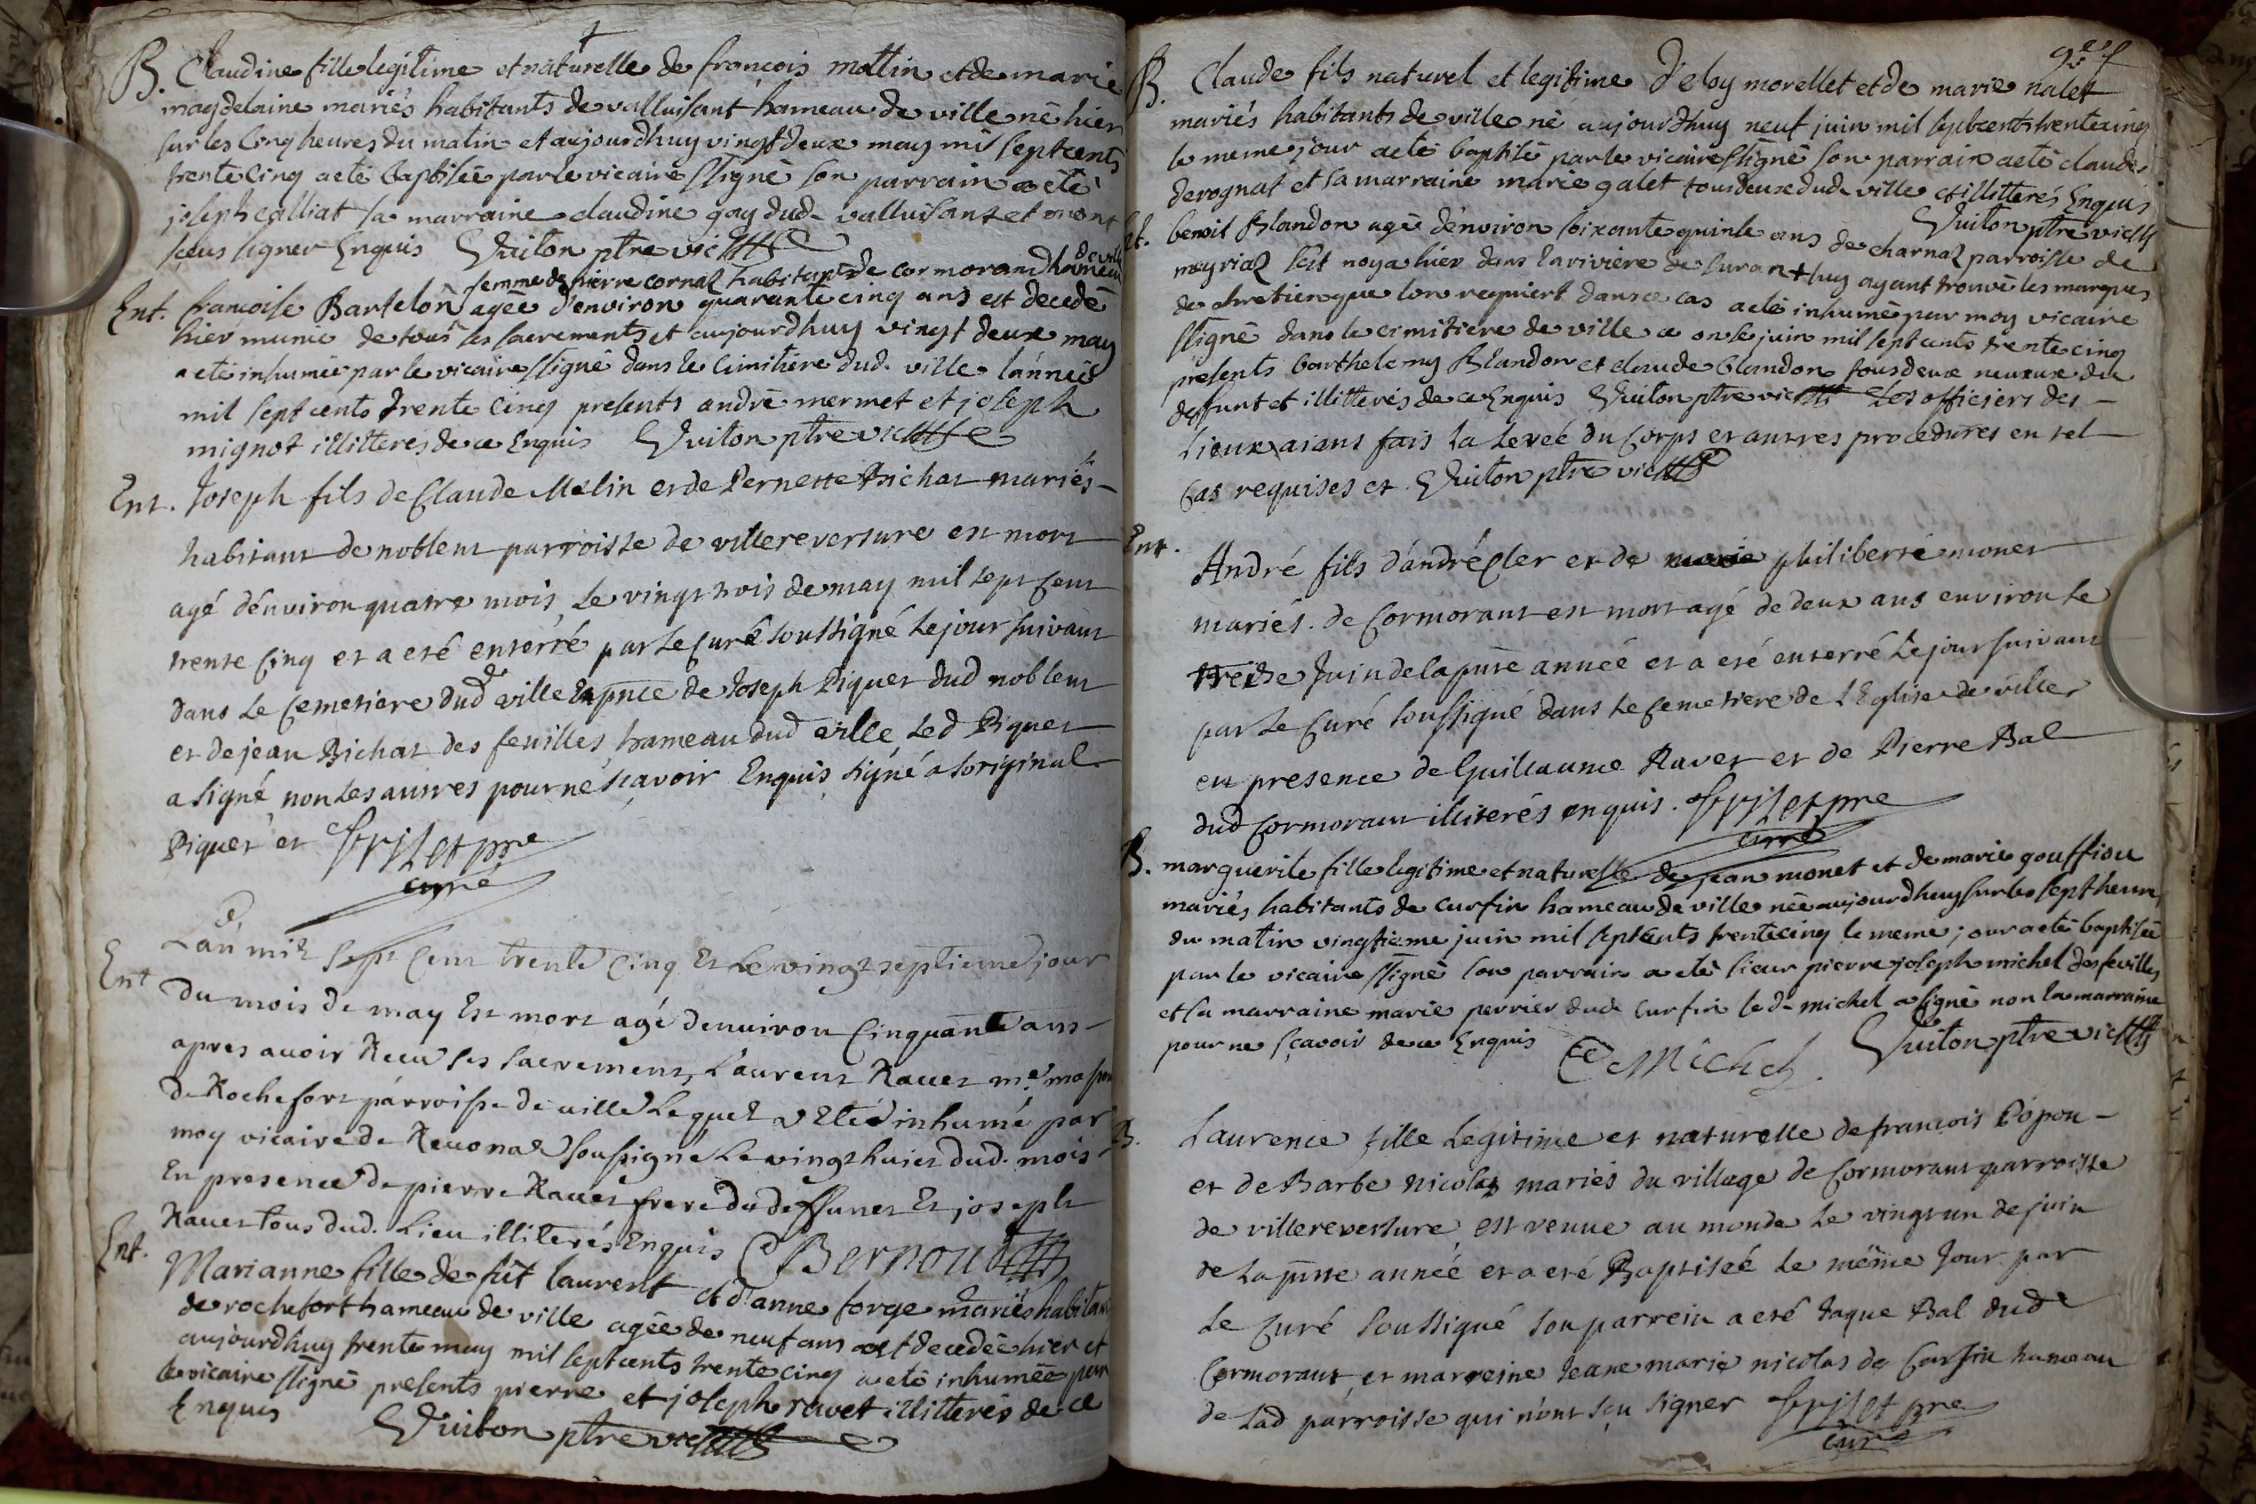 B. Claudine fille legitime et naturelle de francois mollin et de marie
magdelaine mariés habitants de valluisant hameau de ville né hier
sur les cinq heures du matin et aujourdhuy vingt deux may mil sept cents
trente cinq a eté baptisée par le vicaire ssigné son parrain a eté
joseph calliat sa marraine claudine gay dud. valluisant et n'ont
sceus signer Enquis Quiton ptre vic
femme de pierre cornaz habitants de cormorand hameau
de ville
Ent. francoise Bartelon agee d'environ quarante cinq ans est decedé
hier munie de tous les sacrements et aujourdhuy vingt deux may
a eté inhumée par le vicaire ssigné dans le cimitiere dud. ville l'année
mil sept cents trente cinq presents andré mermet et joseph
mignot illitterés de ce Enquis Quiton ptre vic
Ent. Joseph fils de Claude Melin et de Pernette Bichat mariés
habitant de noblent parroisse de villereversure est mort
agé d'environ quatre mois le vingt trois de may mil sept cent
trente cinq et a eté enterré par le Curé soussigné le jour suivant
dans le Cemetiere dud ville En pnce de Joseph Piquet dud noblent
et de jean Bichat des feuilles hameau dud ville Led Piquet
a signé non les autres pour ne sçavoir Enquis, signé a loriginal
Piquet et frilet pre
curé
L'an mil sept Cent trente Cinq Et Le vingt septieme jour
Ent du mois de may Est mort agé denviron Cinquante ans
apres avoir Receu ses sacrement, Laurent Ravet me. masson
de Rochefort parroisse de ville Lequel a Eté inhumé par
moy vicaire de Revonas Soussigné Le vingt huict dud. mois
En presence de pierre Ravet frere du deffunct Et joseph
Ravet tous dud. Lieu illiterés Enquis Bernoud
Ent. Marianne fille de fût laurent et d'anne forge mariés habitans
de rochefort hameau de ville agée de neuf ans est decedée hier et
aujourdhuy trente may mil sept cents trente cinq a eté inhumée par
le vicaire ssigné presents pierre et joseph ravet illitterés de ce
Enquis Quiton ptre vic
B. Claude fils naturel et legitime d'eloy morellet et de marie nalet
mariés habitants de ville né aujourdhuy neuf juin mil sept cents trente cinq
le meme jour a eté baptisé par le vicaire ssigné son parrain a eté claude
derognat et sa marraine marie galet tous deux dud. ville et illitterés Enquis
Quiton ptre vic
Ent. benoit Blandon agé d'environ soixante quinze ans de charnaz parroisse de
meyriaz s'est noya hier dans la riviere de suran + luy ayant trouvé les marques
de chretien que l'on requiert dans ce cas a eté inhumé par moy vicaire
ssigné dans le cimitiere de ville ce onze juin mil sept cents trente cinq
presents barthelemy Blandon et claude blandon tous deux neveux du
deffunt et illitterés de ce Enquis Quiton ptre vic Les officiers des
Lieux aians fais La Levée du Corps et autres procedures en tel
Cas requises et Quiton ptre vic
Ent. André fils d'andré Cler et de philiberte monet
mariés de Cormorant est mort agé de deux ans environ Le
treize Juin de la pnte année et a eté enterré Le jour suivant
par Le Curé soussigné dans Le Cemetiere de L'Eglise de ville
en presence de Guillaume Ravet et de Pierre Bal
dud Cormorant illiterés enquis. frilet pre
curé
B. marguerite fille legitime et naturelle de jean monet et de marie gouffiou
mariés habitants de curfin hameau de ville née aujourdhuy sur les sept heures
du matin vingtieme juin mil sept cents trente cinq le meme jour a eté baptisée
par le vicaire ssigné son parrain a eté sieur pierre joseph michel des feuilles
et sa marraine marie perrier dud. curfin le d. michel a signé non la marraine
pour ne sçavoir de ce Enquis Michel Quiton ptre vic
B. Laurence fille Legitime et naturelle de francois Popon
et de Barbe nicolas mariés du village de Cormorant parroisse
de villereversure est venue au monde Le vingt un de juin
de La pnte année et a eté Baptisée Le même Jour par
Le Curé soussigné son parrein a eté Jaque Bal dud
Cormorant et marreine Jeane marie nicolas de Curfin hameau
de Lad parroisse qui n'ont sçu signer frilet pre
curé